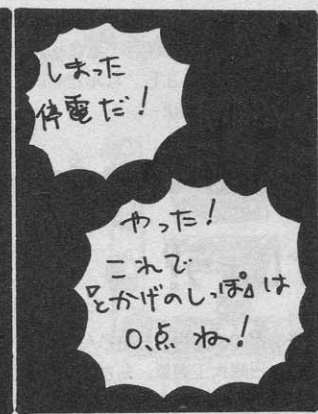 しまった
停電だ！
やった！
これで
『とかげのしっぽ』は
0点ね！